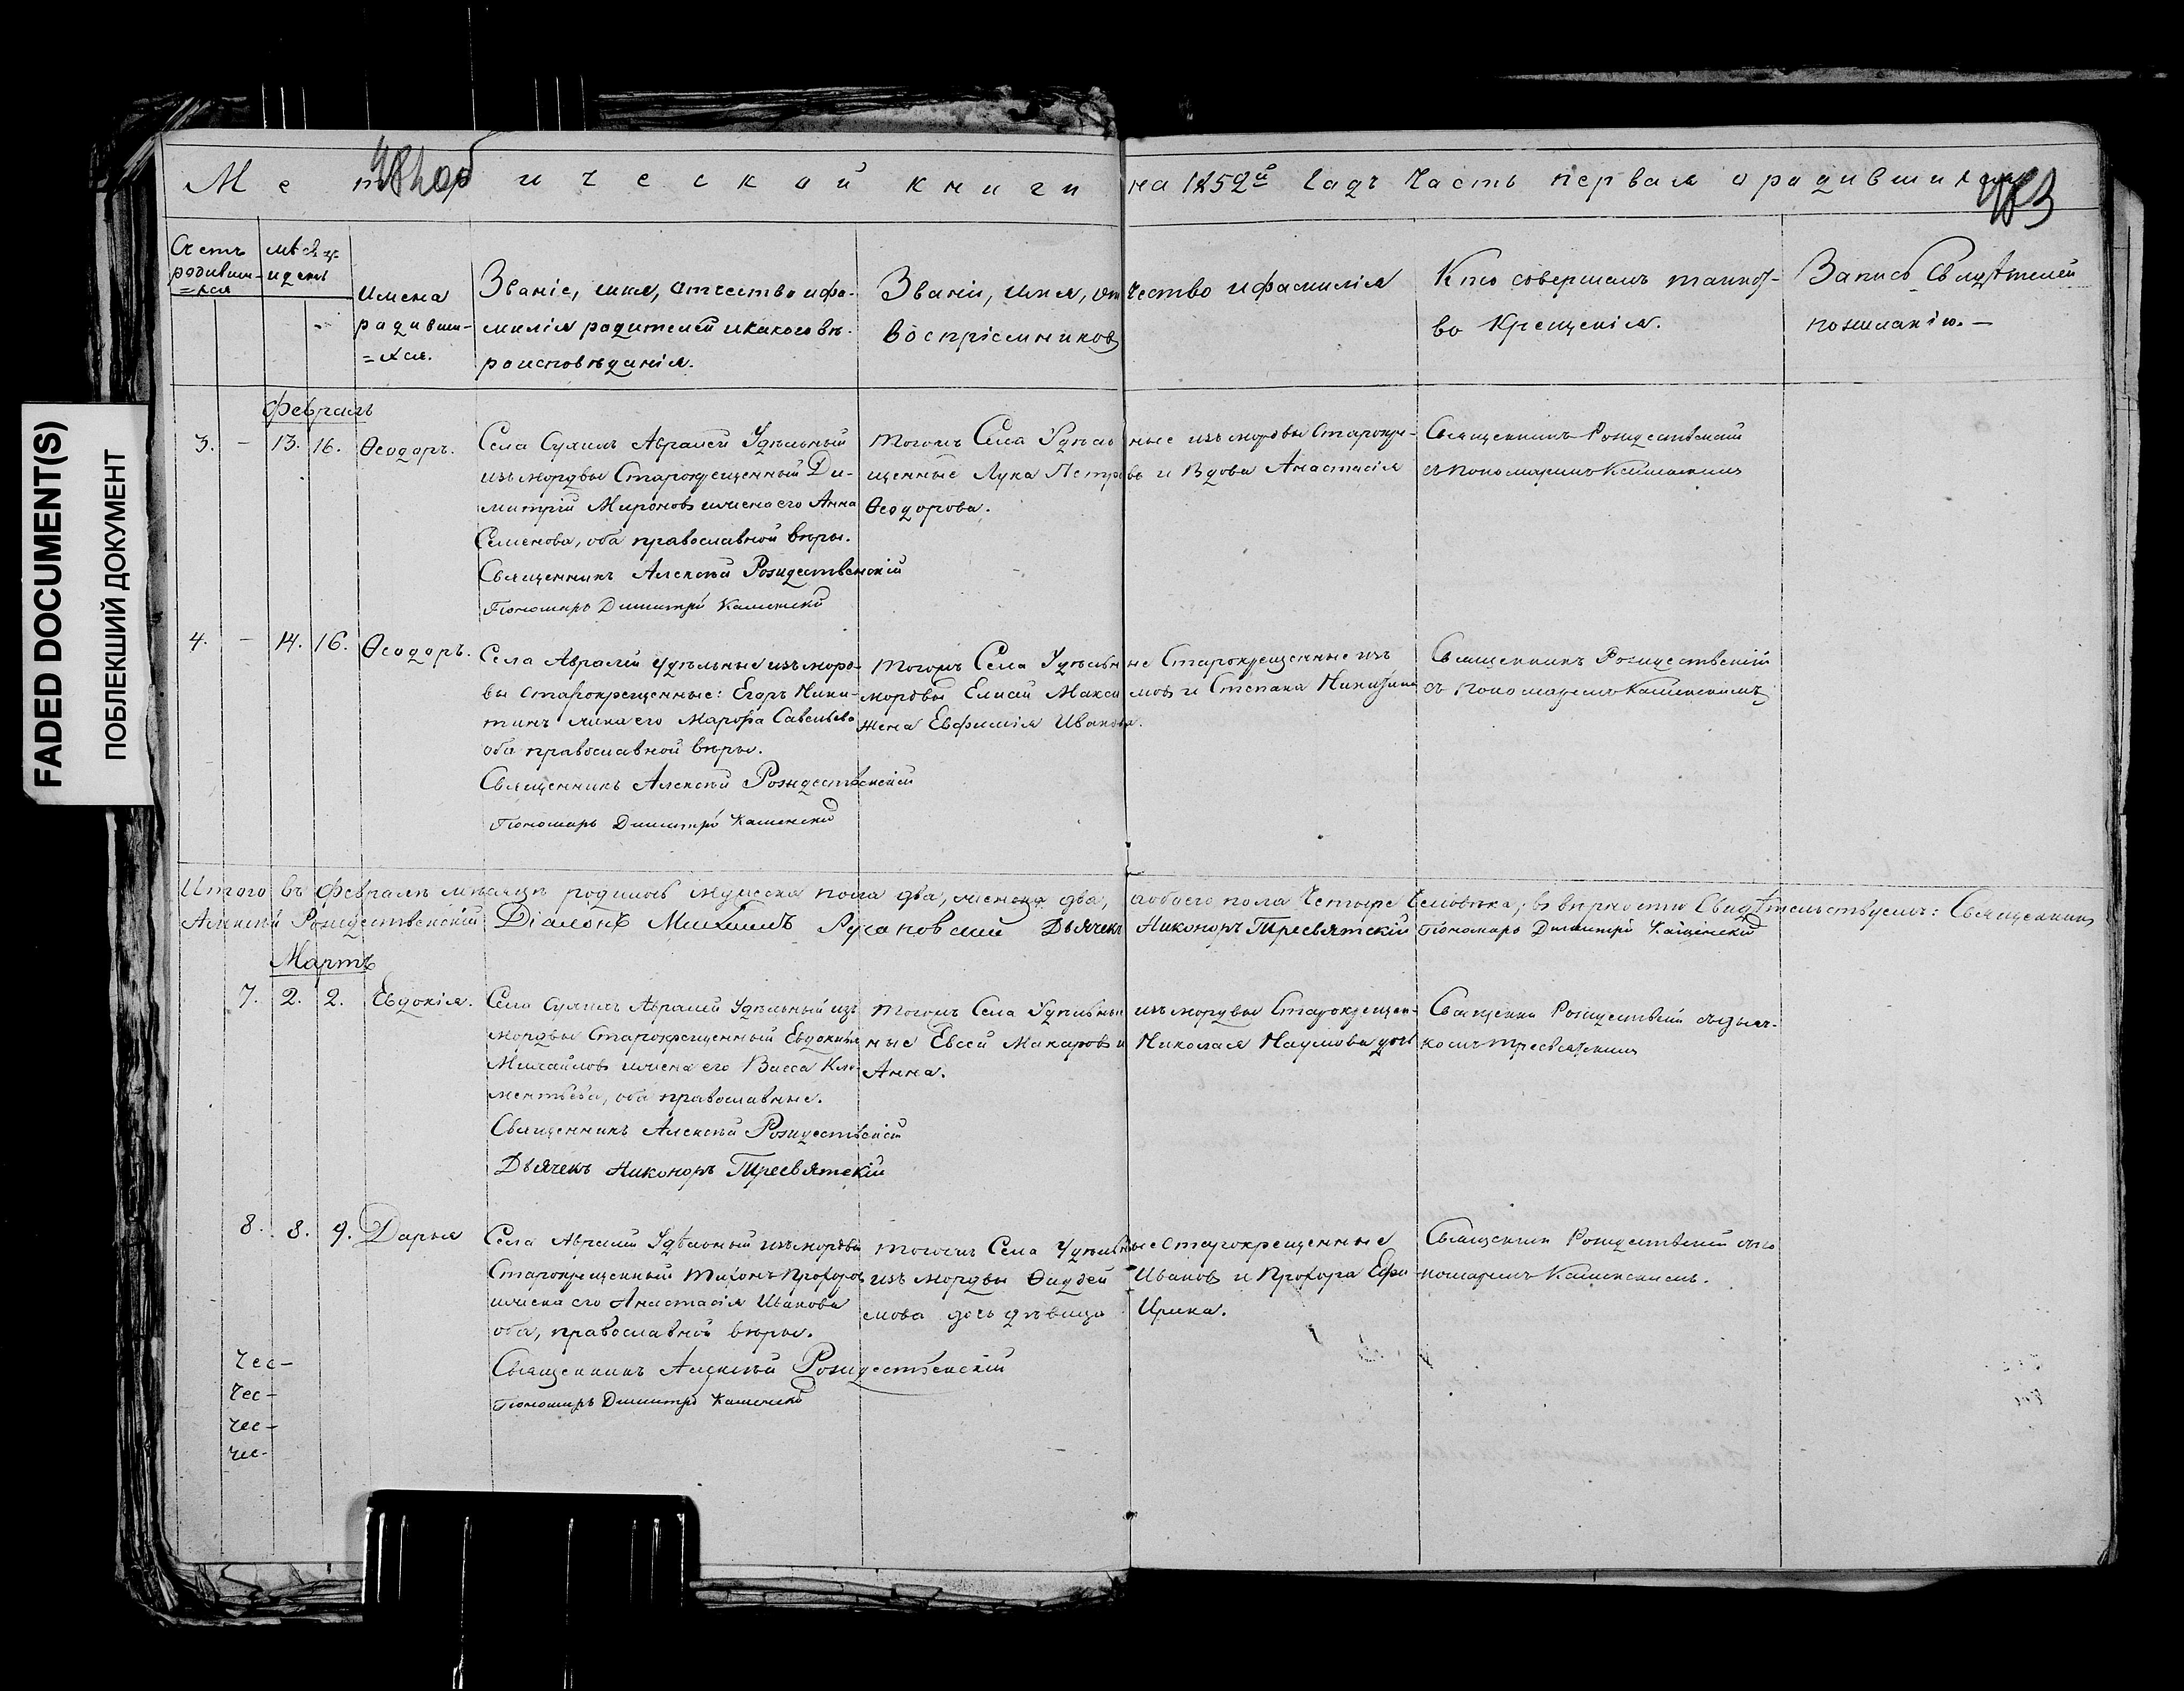 FADED DOCUMENT(S)
ПОБЛЕКШИЙ ДОКУМЕНТ
Метрической книги на 1852й Годъ Часть первая о родившихся
483
Счетъ родивши=хся
мѣсяцъ и день
Имена родивши=хся.
Званіе, имя, отчество и фа-
милія родителей и какого вѣ-
роисповѣданія.
Званіе, имя, отчество и фамилія
воспріемниковъ
Кто совершалъ таинст-
во Крещенія.
Запись Свидѣтелей
по желанію. —
Февраль
3. - 13. 16. Ѳеодоръ.
Села Сухихъ Авралей Удѣльный
изъ мордвы Старокрещенный Ди-
митрій Мироновъ и жена его Анна
Семенова, оба православной вѣры.
Священникъ Алексѣй Рождественскій
Пономарь Димитрій Каменскій
тогожъ Села Удѣльные изъ мордвы Старокре-
щенные Лука Петровъ и Вдова Анастасія
Ѳеодорова.
Священникъ Рождественскій
съ пономаремъ Каменскимъ
4. - 14. 16. Ѳеодоръ.
Села Авралей Удѣльные изъ морд-
вы старокрещенные: Егоръ Ники-
тинъ жена его Марфа Савельева
оба православной вѣры.
Священникъ Алексѣй Рождественскій
Пономарь Димитрій Каменскій
тогожъ Села Удѣльные Старокрещенные изъ
мордвы Елисей Максимовъ и Степана Никитина
жена Евфимія Иванова.
Священникъ Рождественскій
съ пономаремъ Каменскимъ
Итого въ Февралѣ мѣсяцѣ родилось мужеска пола два, женска два, а обоего пола Четыре Человѣка; въ вѣрности Свидѣтельствуемъ: Священникъ
Алексѣй Рождественскій Діаконъ Михаилъ Русановскій Дьячекъ Никоноръ Тресвятскій Пономарь Димитрій Каменскій
Мартъ
7. 2. 2. Евдокія.
Села Сухихъ Авралей Удѣльный изъ
мордвы Старокрещенный Евдокимъ
Михайловъ и жена его Васса Кле-
ментьева, оба православные.
Священникъ Алексѣй Рождественскій
Дьячекъ Никоноръ Тресвятскій
тогожъ Села Удѣльные изъ мордвы Старокрещен-
ные Евсей Макаровъ и Николая Наумова дочь
Анна.
Священникъ Рождественскій съ дьяч-
комъ Тресвятскимъ
8. 8. 9. Дарья
Села Авралей Удѣльный изъ мордвы
Старокрещенный Тихонъ Прохоровъ
и жена его Анастасія Иванова
оба, православной вѣры.
Священникъ Алексѣй Рождественскій
Пономарь Димитрій Каменскій
тогожъ Села Удѣльные старокрещенные
изъ мордвы Ѳаддей Ивановъ и Прохора Ефи-
мова дочь дѣвица Ирина.
Священникъ Рождественскій съ по-
номаремъ Каменскимъ.
Чес-
Чес-
чес-
чес-